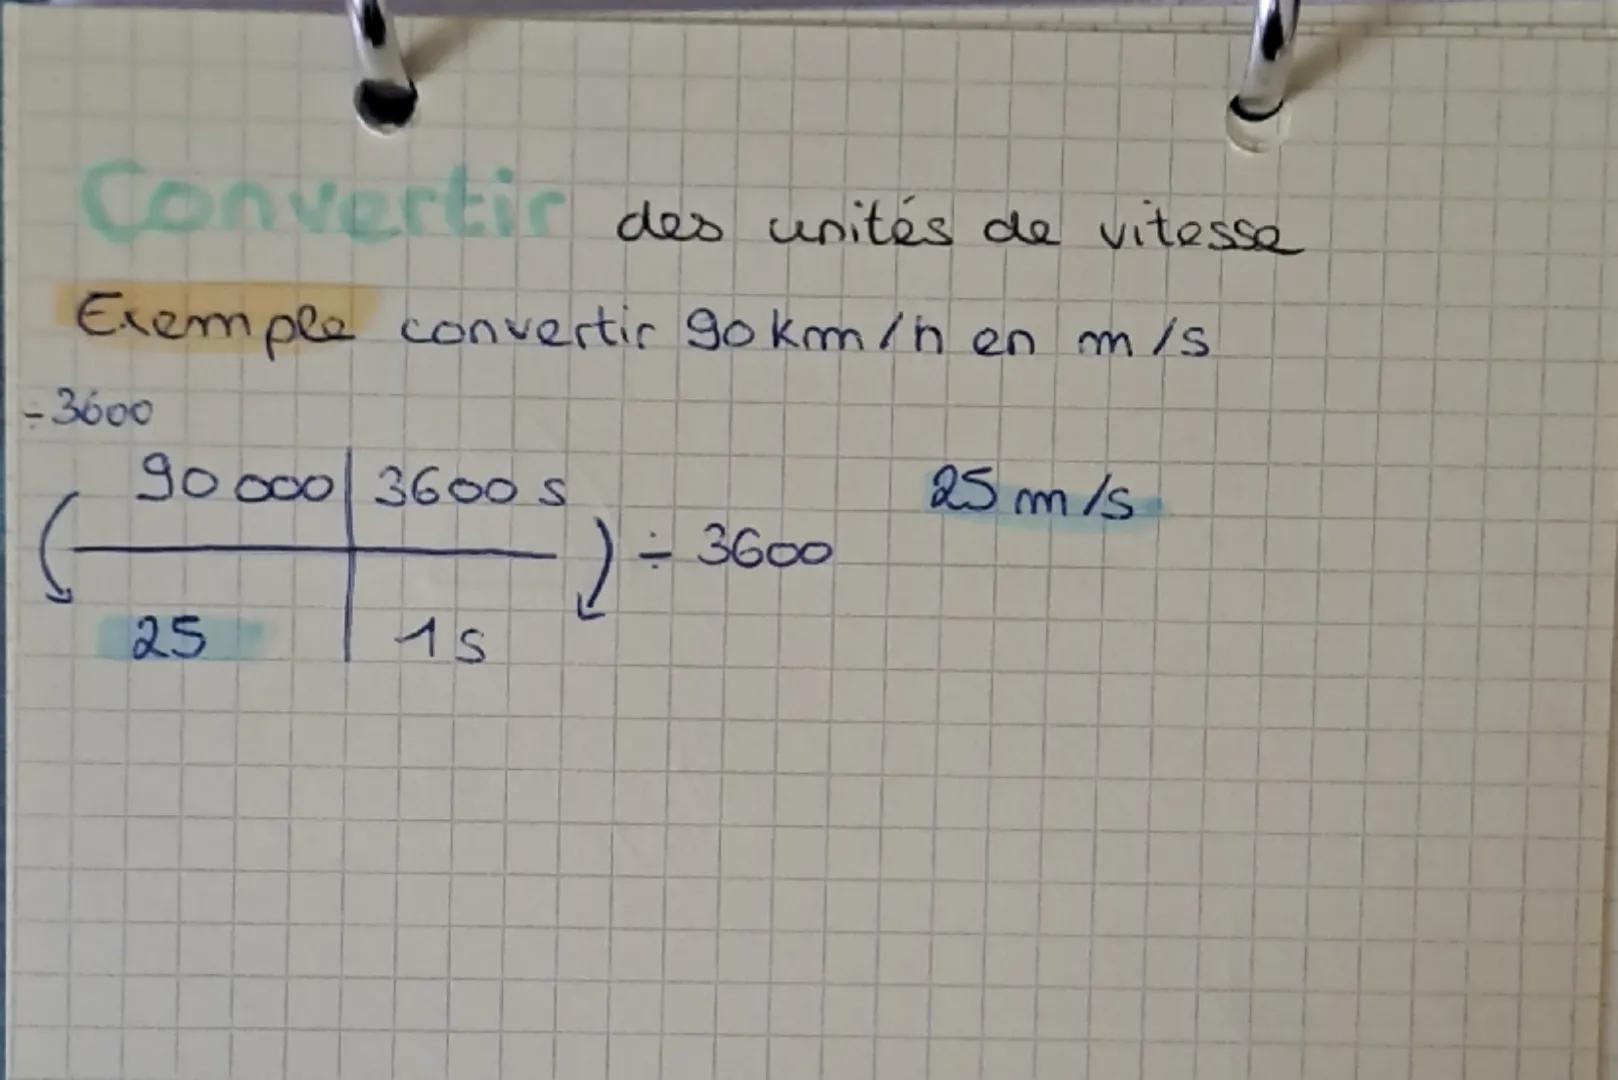 Convertir des unités de vitesse
Exemple convertir 90 km/h en m/s
÷3600
90 000 | 3600 s
25 m/s
÷ 3600
25 | 1s